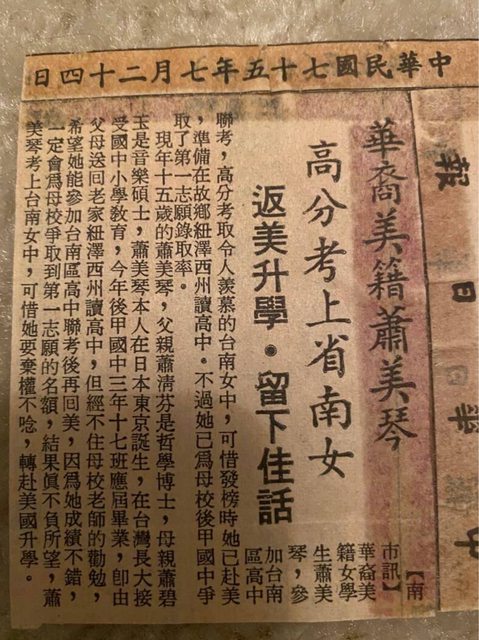 中華民國七十五年七月二十四日
中華日報
華裔美籍蕭美琴
高分考上省南女
返美升學・留下佳話
【南
市訊】
華裔美
籍女學
生蕭美
琴，參
加台南
區高中
聯考，高分考取令人羨慕的台南女中，可惜發榜時她已赴美
，準備在故鄉紐澤西州讀高中。不過她已為母校後甲國中爭
取了第一志願錄取率。
現年十五歲的蕭美琴，父親蕭清芬是哲學博士，母親蕭碧
玉是音樂碩士，蕭美琴本人在日本東京誕生，在台灣長大接
受國中小學教育，今年後甲國中三年十七班應屆畢業，卽由
父母送回老家紐澤西州讀高中，但經不住母校老師的勸勉，
希望她能參加台南區高中聯考後再回美，因為她成績不錯，
一定會為母校爭取到第一志願的名額，結果眞不負所望，蕭
美琴考上台南女中，可惜她要棄權不唸，轉赴美國升學。